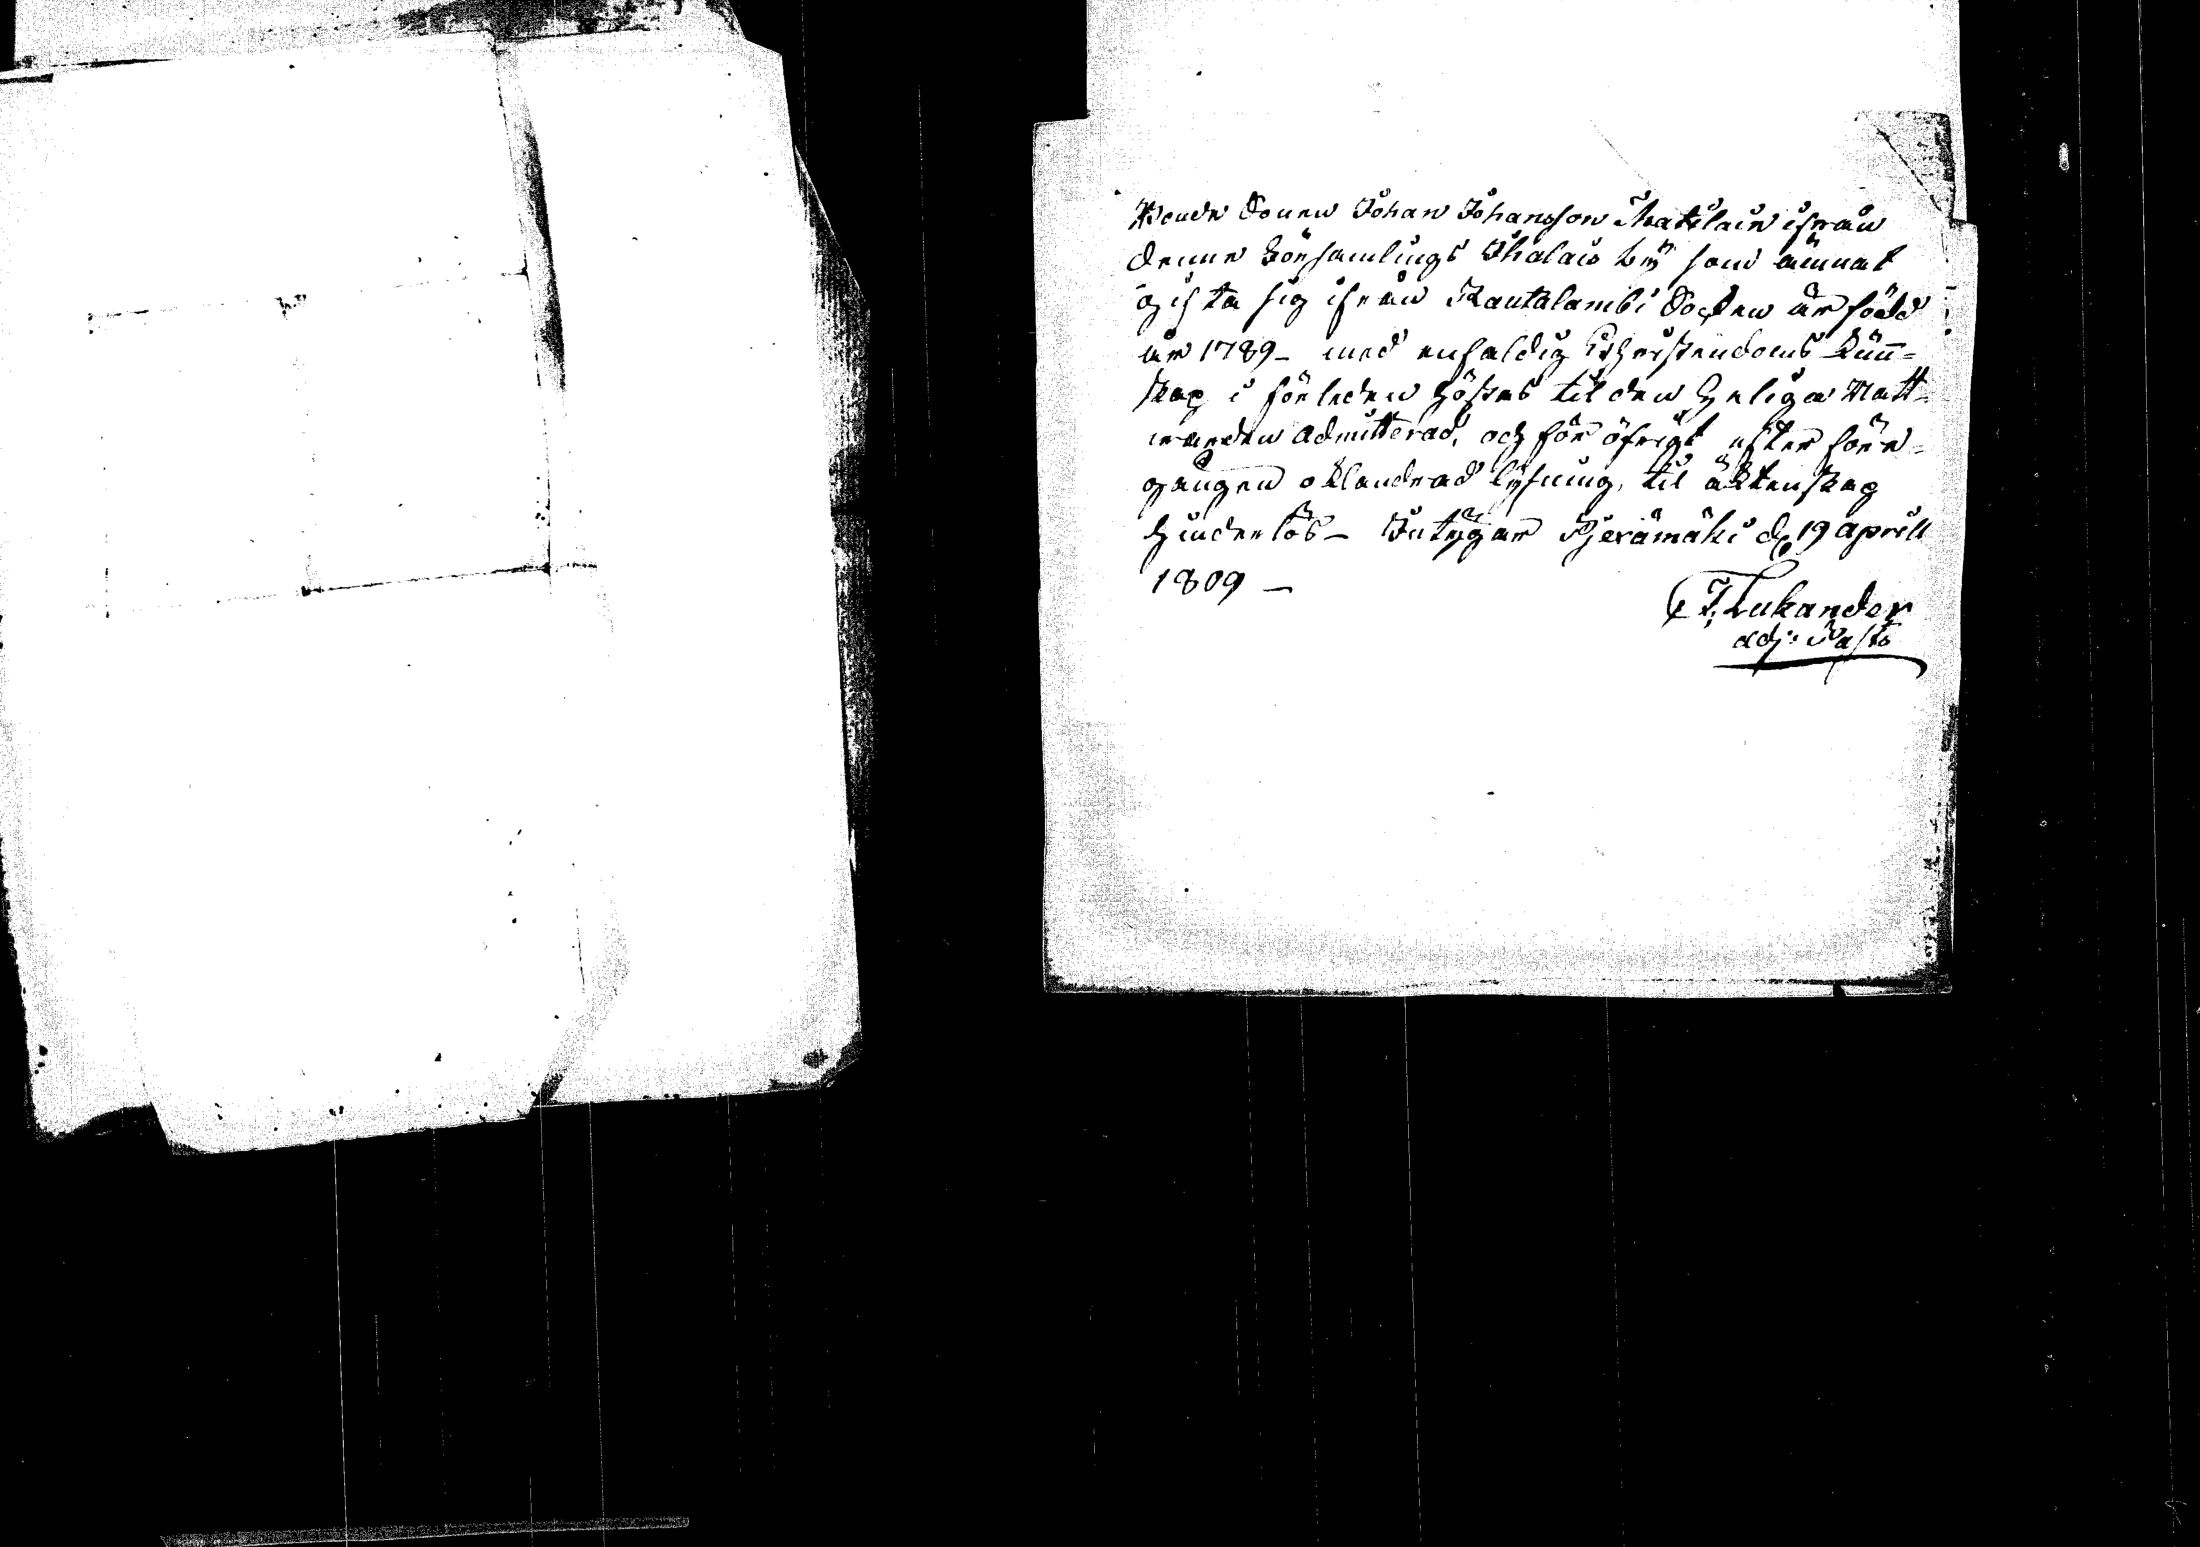 Bonde Sonen Johan Johansson Matilain ifrån
denne Församlings Ihalais bÿ som ämnat
gifta sig ifrån Rautalambi Sochen är född
år 1789 – med enfaldig Christendoms Kun̄=
skap i förleden höstas til den heliga Natt=
warden admitterad, och för öfrigt efter före=
gången oklandrad lysning, til äktenskap
hinderlös – Intÿgar Pjexämäki d. 19 aprill
1809 –
Lukander
adj: Past: